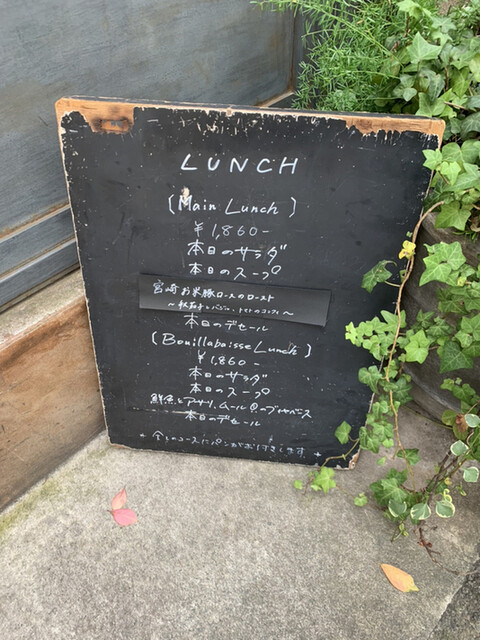 LUNCH
(Main Lunch)
¥1,860-
本日のサラダ
本日のスープ
宮崎お米豚ロースのロースト
～秋茄子とバジル、トマトのコンフィ～
本日のデセール
(Bouillabaisse Lunch)
¥1,860-
本日のサラダ
本日のスープ
鮮魚とアサリ、ムール貝のブイヤベース
本日のデセール
* 全てのコースにパンがおつきします。*